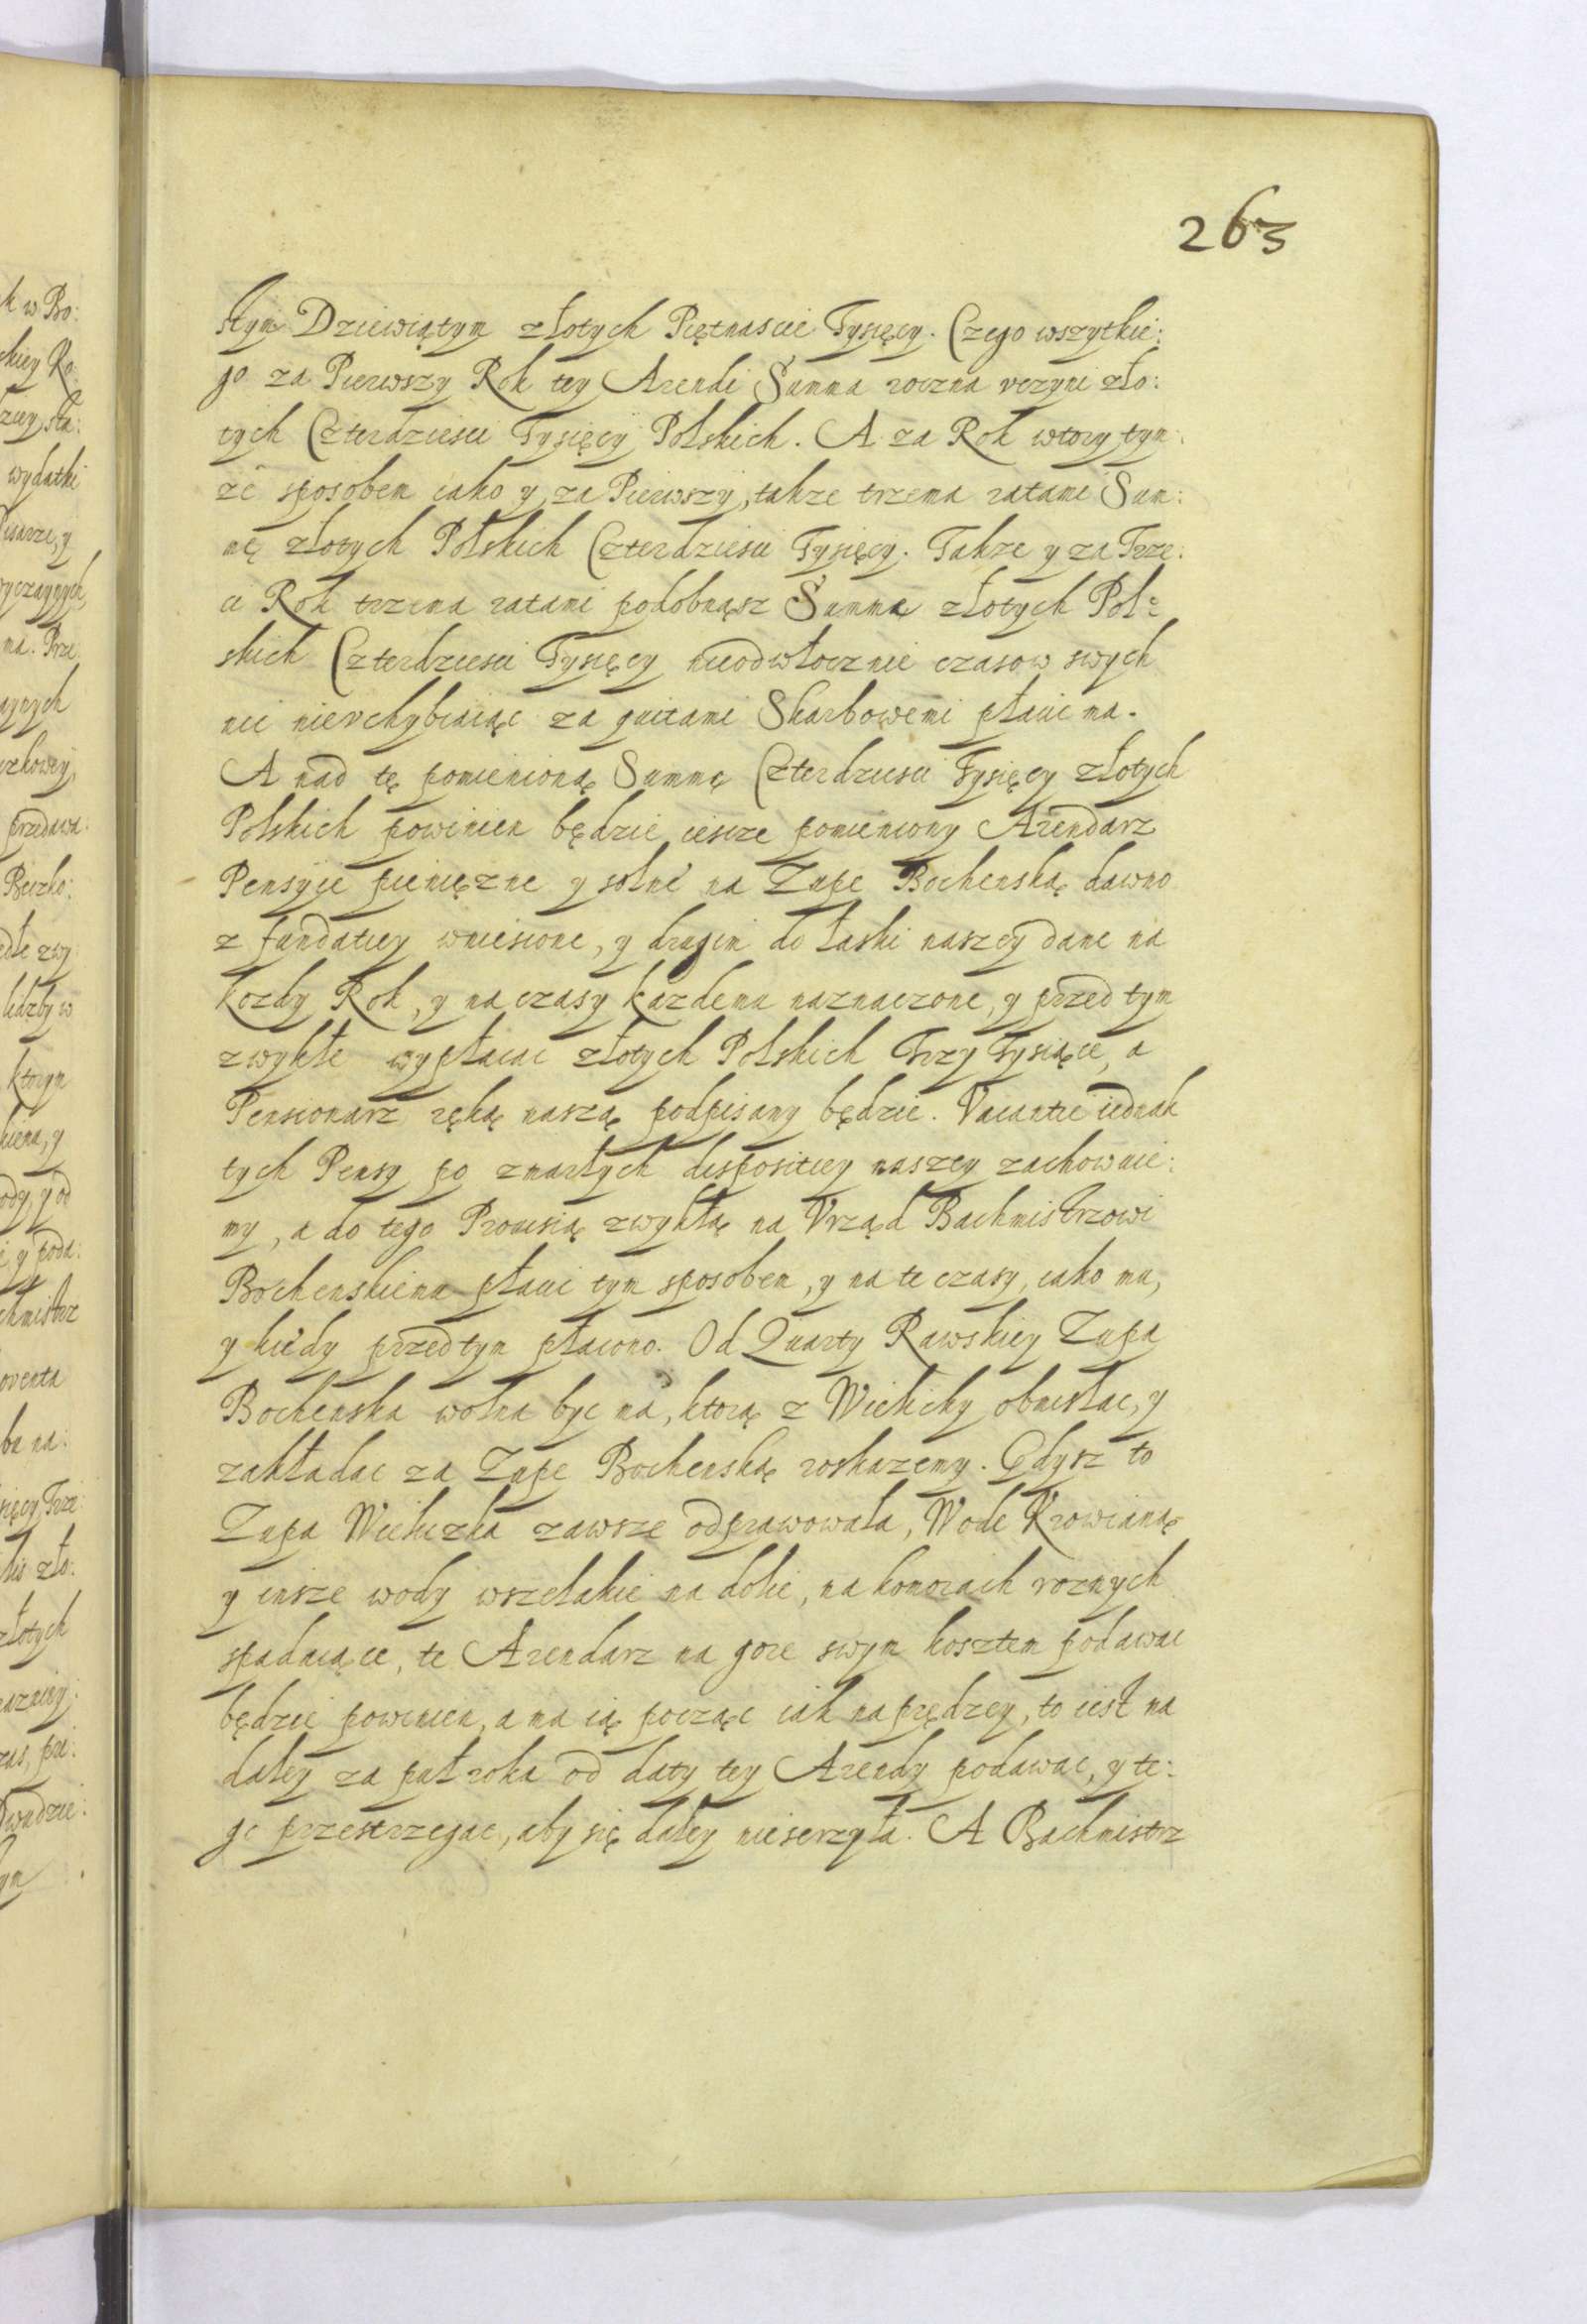 263
stym Dziewiątym złotych Piętnascie Tysięcy. Czego wszytkie:
go za Pierwszy Rok tey Arendi Summa roczna vczyni zło:
tych Czterdziesci Tysięcy Polskich. A za Rok wtory tym
że sposobem iako y za Pierwszy, takze trzema ratami Sum:
mę złotych Polskich Czterdziesci Tysięcy. Takze y za Trze:
ci Rok trzema ratami podobnąsz Summę złotych Pol:
skich Czterdziesci Tysięcy nieodwłocznie czasow swych
nic nievchybiaiąc za quitami Skarbowemi płacic ma.
A nad tę pomienioną Summę Czterdziesci Tysięcy złotych
Polskich powinien będzie ieszcze pomieniony Arendarz
Pensyie pienięzne y solne na Zupę Bochenską dawno
z fundatiey wniesione, y drugim do łaski naszey dane na
kozdy Rok, y na czasy kazdemu naznaczone, y przed tym
zwykłe wypłacac złotych Polskich Trzy Tysiące, a
Pensionarz ręką naszą podpisany będzie. Vacantie iednak
tych Pensy po zmarłych dispositiey naszey zachowuie:
my, a do tego Prouisią zwykłą na Vrząd Bachmistrzowi
Bochenskiemu płacic tym sposobem, y na te czasy, iako mu,
y kiedy przedtym płacono. Od Quarty Rawskiey Zupa
Bochenska wolna byc ma, ktorą z Wieliczky obmyslac, y
zakładac za Zupę Bochenską roskazemy. Gdysz to
Zupa Wieliczka zawsze odprawowała, Wodę Krowianą
y insze wody wszelakie na dole, na komorach roznych
spadaiące, te Arendarz na gore swym kosztem podawac
będzie powinien, a ma ią począc iak naprędzey, to iest na
daley za puł roka od daty tey Arendy podawac, y te:
go przestrzegac, aby się daley nieserzyła. A Bachmistrz